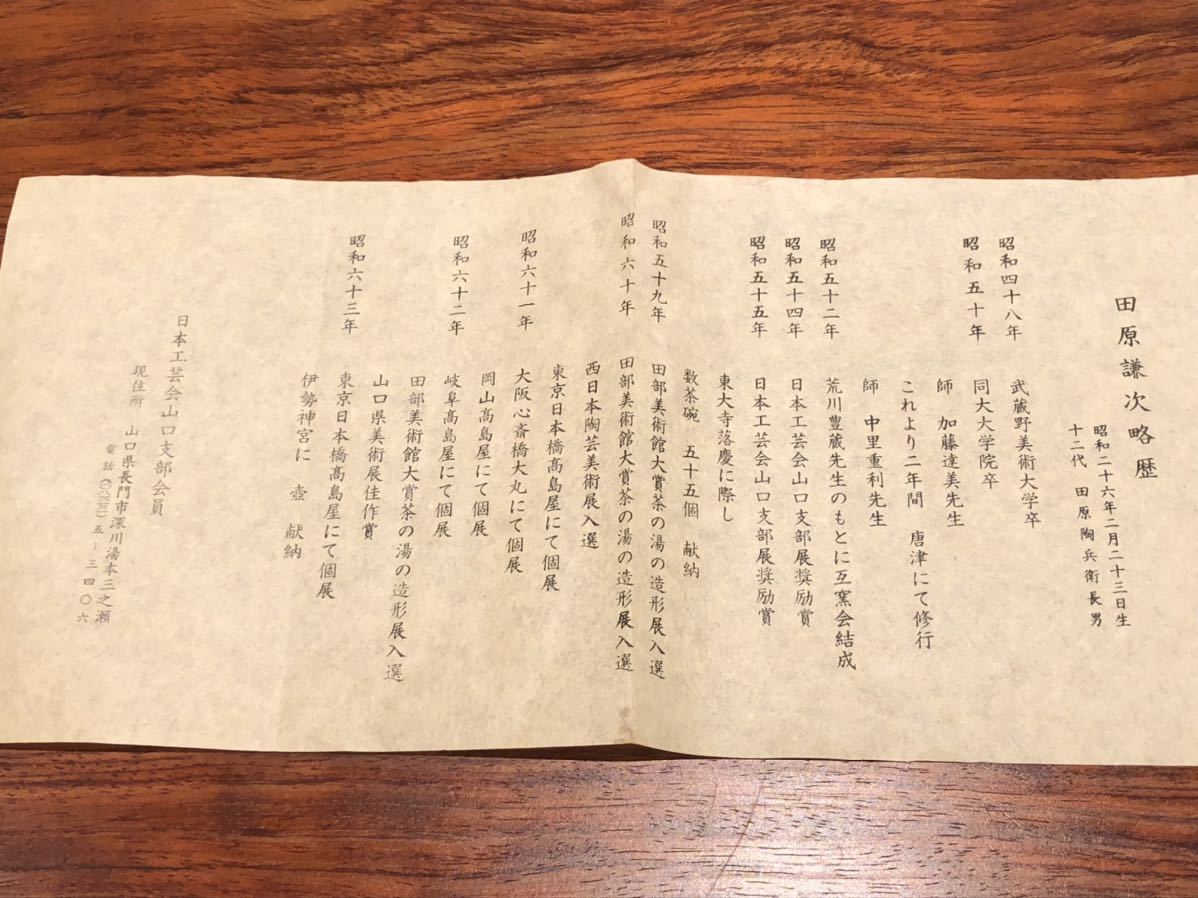 田原謙次略歴
昭和二十六年二月二十三日生
十二代 田原陶兵衛長男
昭和四十八年 武蔵野美術大学卒
昭和五十年 同大大学院卒
師 加藤達美先生
これより二年間 唐津にて修行
師 中里重利先生
昭和五十二年 荒川豊蔵先生のもとに互窯会結成
昭和五十四年 日本工芸会山口支部展奨励賞
昭和五十五年 日本工芸会山口支部展奨励賞
東大寺落慶に際し
数茶碗 五十五個 献納
昭和五十九年 田部美術館大賞茶の湯の造形展入選
昭和六十年 田部美術館大賞茶の湯の造形展入選
西日本陶芸美術展入選
東京日本橋髙島屋にて個展
昭和六十一年 大阪心斎橋大丸にて個展
岡山髙島屋にて個展
昭和六十二年 岐阜髙島屋にて個展
田部美術館大賞茶の湯の造形展入選
山口県美術展佳作賞
昭和六十三年 東京日本橋髙島屋にて個展
伊勢神宮に 壺 献納
日本工芸会山口支部会員
現住所 山口県長門市深川湯本三之瀬
電話(〇八三七二)五-三四〇六